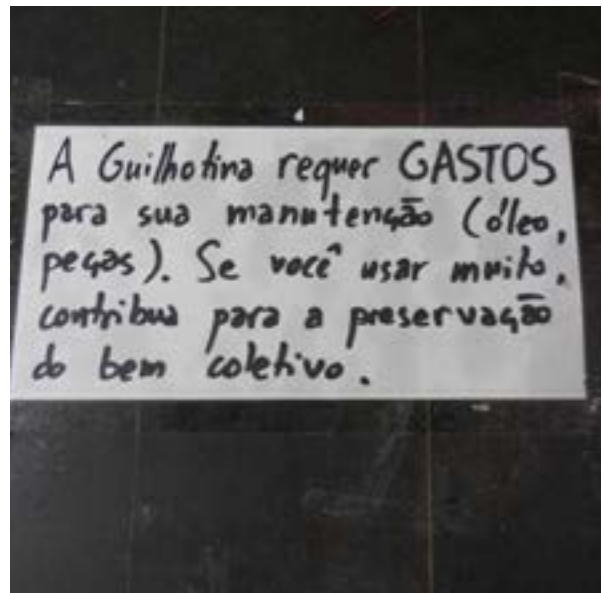 A Guilhotina requer GASTOS
para sua manutenção (óleo,
peças). Se você usar muito,
contribua para a preservação
do bem coletivo.